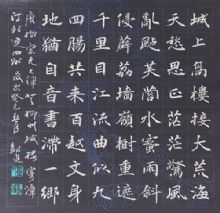 城上高樓接大荒海
天愁思正茫茫驚風
亂颭芙蓉水密雨斜
侵薜荔牆嶺樹重遮
千里目江流曲似九
回腸共來百越文身
地猶自音書滯一鄉
唐柳宗元七律登柳州城樓寄漳
汀封連四州